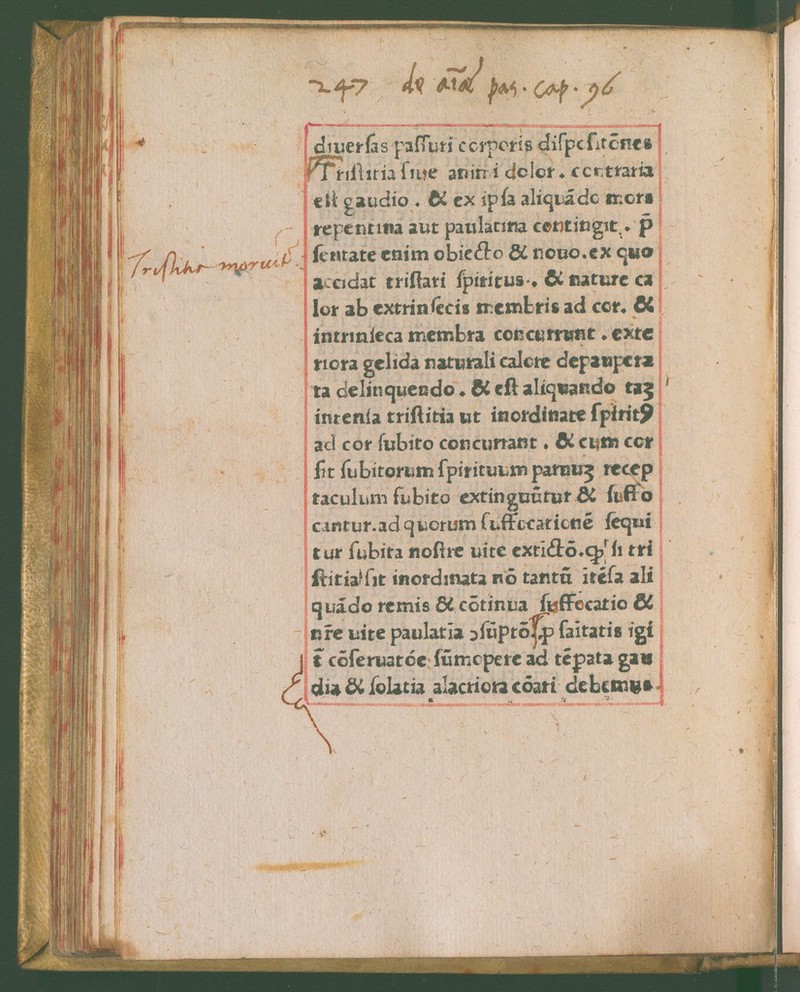 247 de aīal pas. cap. 96
diuerſas paſſuri corporis diſpoſitōnes
Triſtitia ſiue animi dolor. contraria
eſt gaudio. & ex ipſa aliquádo mors
repentina aut paulatina contingit. p̄
ſentate enim obiecto & nouo.ex quo
accidat triſtari ſpiritus., & nature ca
lor ab extrinſecis membris ad cor. &
intrinſeca membra concurrunt. exte
riora gelida naturali calore depaupera
ta delinquendo. & eſt aliquando taꝫ
intenſa triſtitia ut inordinate ſpiritꝰ
ad cor ſubito concurrant. & cum cor
ſit ſubitorum ſpirituum paruuꝫ recep
taculum ſubito extinguūtur & ſuffo
cantur.ad quorum ſuffocationē ſequi
tur ſubita noſtre uite extictō.ꝙ ſi tri
ſtitia ſit inordinata nō tantū itéſa ali
quádo remis & cōtinua ſuffocatio &
nr̄e uite paulatia ↄſūptō ſp ſaitatis igi
t̄ cōſeruatóe ſūmopere ad tépata gau
dia & ſolatia alacriora cōari debemus.
Triſtitie